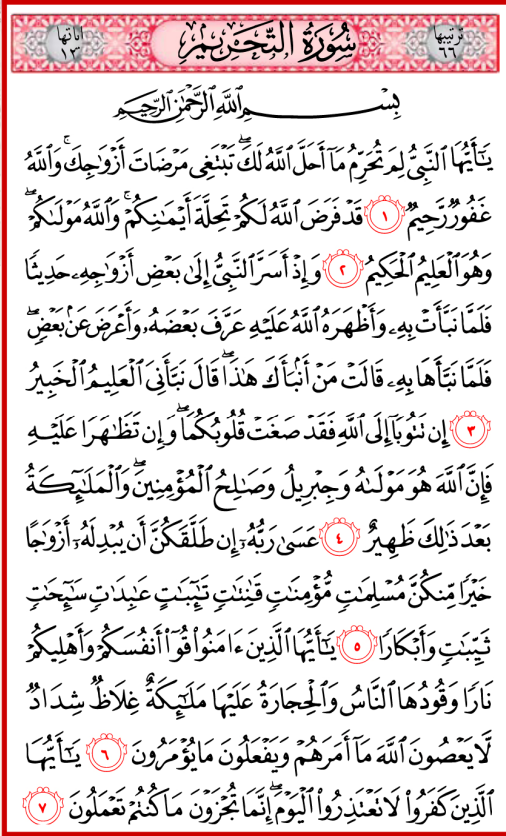 ترتيبها ٦٦ سُورَةُ التَّحْرِيمِ آياتها ١٣
بِسْمِ اللَّهِ الرَّحْمَٰنِ الرَّحِيمِ
يَٰٓأَيُّهَا ٱلنَّبِيُّ لِمَ تُحَرِّمُ مَآ أَحَلَّ ٱللَّهُ لَكَۖ تَبْتَغِى مَرْضَاتَ أَزْوَٰجِكَۚ وَٱللَّهُ
غَفُورٌ رَّحِيمٌ ١ قَدْ فَرَضَ ٱللَّهُ لَكُمْ تَحِلَّةَ أَيْمَٰنِكُمْۚ وَٱللَّهُ مَوْلَىٰكُمْۖ
وَهُوَ ٱلْعَلِيمُ ٱلْحَكِيمُ ٢ وَإِذْ أَسَرَّ ٱلنَّبِيُّ إِلَىٰ بَعْضِ أَزْوَٰجِهِۦ حَدِيثًا
فَلَمَّا نَبَّأَتْ بِهِۦ وَأَظْهَرَهُ ٱللَّهُ عَلَيْهِ عَرَّفَ بَعْضَهُۥ وَأَعْرَضَ عَنۢ بَعْضٍۖ
فَلَمَّا نَبَّأَهَا بِهِۦ قَالَتْ مَنْ أَنۢبَأَكَ هَٰذَاۖ قَالَ نَبَّأَنِىَ ٱلْعَلِيمُ ٱلْخَبِيرُ
٣ إِن تَتُوبَآ إِلَى ٱللَّهِ فَقَدْ صَغَتْ قُلُوبُكُمَاۖ وَإِن تَظَٰهَرَا عَلَيْهِ
فَإِنَّ ٱللَّهَ هُوَ مَوْلَىٰهُ وَجِبْرِيلُ وَصَٰلِحُ ٱلْمُؤْمِنِينَۖ وَٱلْمَلَٰٓئِكَةُ
بَعْدَ ذَٰلِكَ ظَهِيرٌ ٤ عَسَىٰ رَبُّهُۥٓ إِن طَلَّقَكُنَّ أَن يُبْدِلَهُۥٓ أَزْوَٰجًا
خَيْرًا مِّنكُنَّ مُسْلِمَٰتٍ مُّؤْمِنَٰتٍ قَٰنِتَٰتٍ تَٰٓئِبَٰتٍ عَٰبِدَٰتٍ سَٰٓئِحَٰتٍ
ثَيِّبَٰتٍ وَأَبْكَارًا ٥ يَٰٓأَيُّهَا ٱلَّذِينَ ءَامَنُوا۟ قُوٓا۟ أَنفُسَكُمْ وَأَهْلِيكُمْ
نَارًا وَقُودُهَا ٱلنَّاسُ وَٱلْحِجَارَةُ عَلَيْهَا مَلَٰٓئِكَةٌ غِلَاظٌ شِدَادٌ
لَّا يَعْصُونَ ٱللَّهَ مَآ أَمَرَهُمْ وَيَفْعَلُونَ مَا يُؤْمَرُونَ ٦ يَٰٓأَيُّهَا
ٱلَّذِينَ كَفَرُوا۟ لَا تَعْتَذِرُوا۟ ٱلْيَوْمَۖ إِنَّمَا تُجْزَوْنَ مَا كُنتُمْ تَعْمَلُونَ ٧